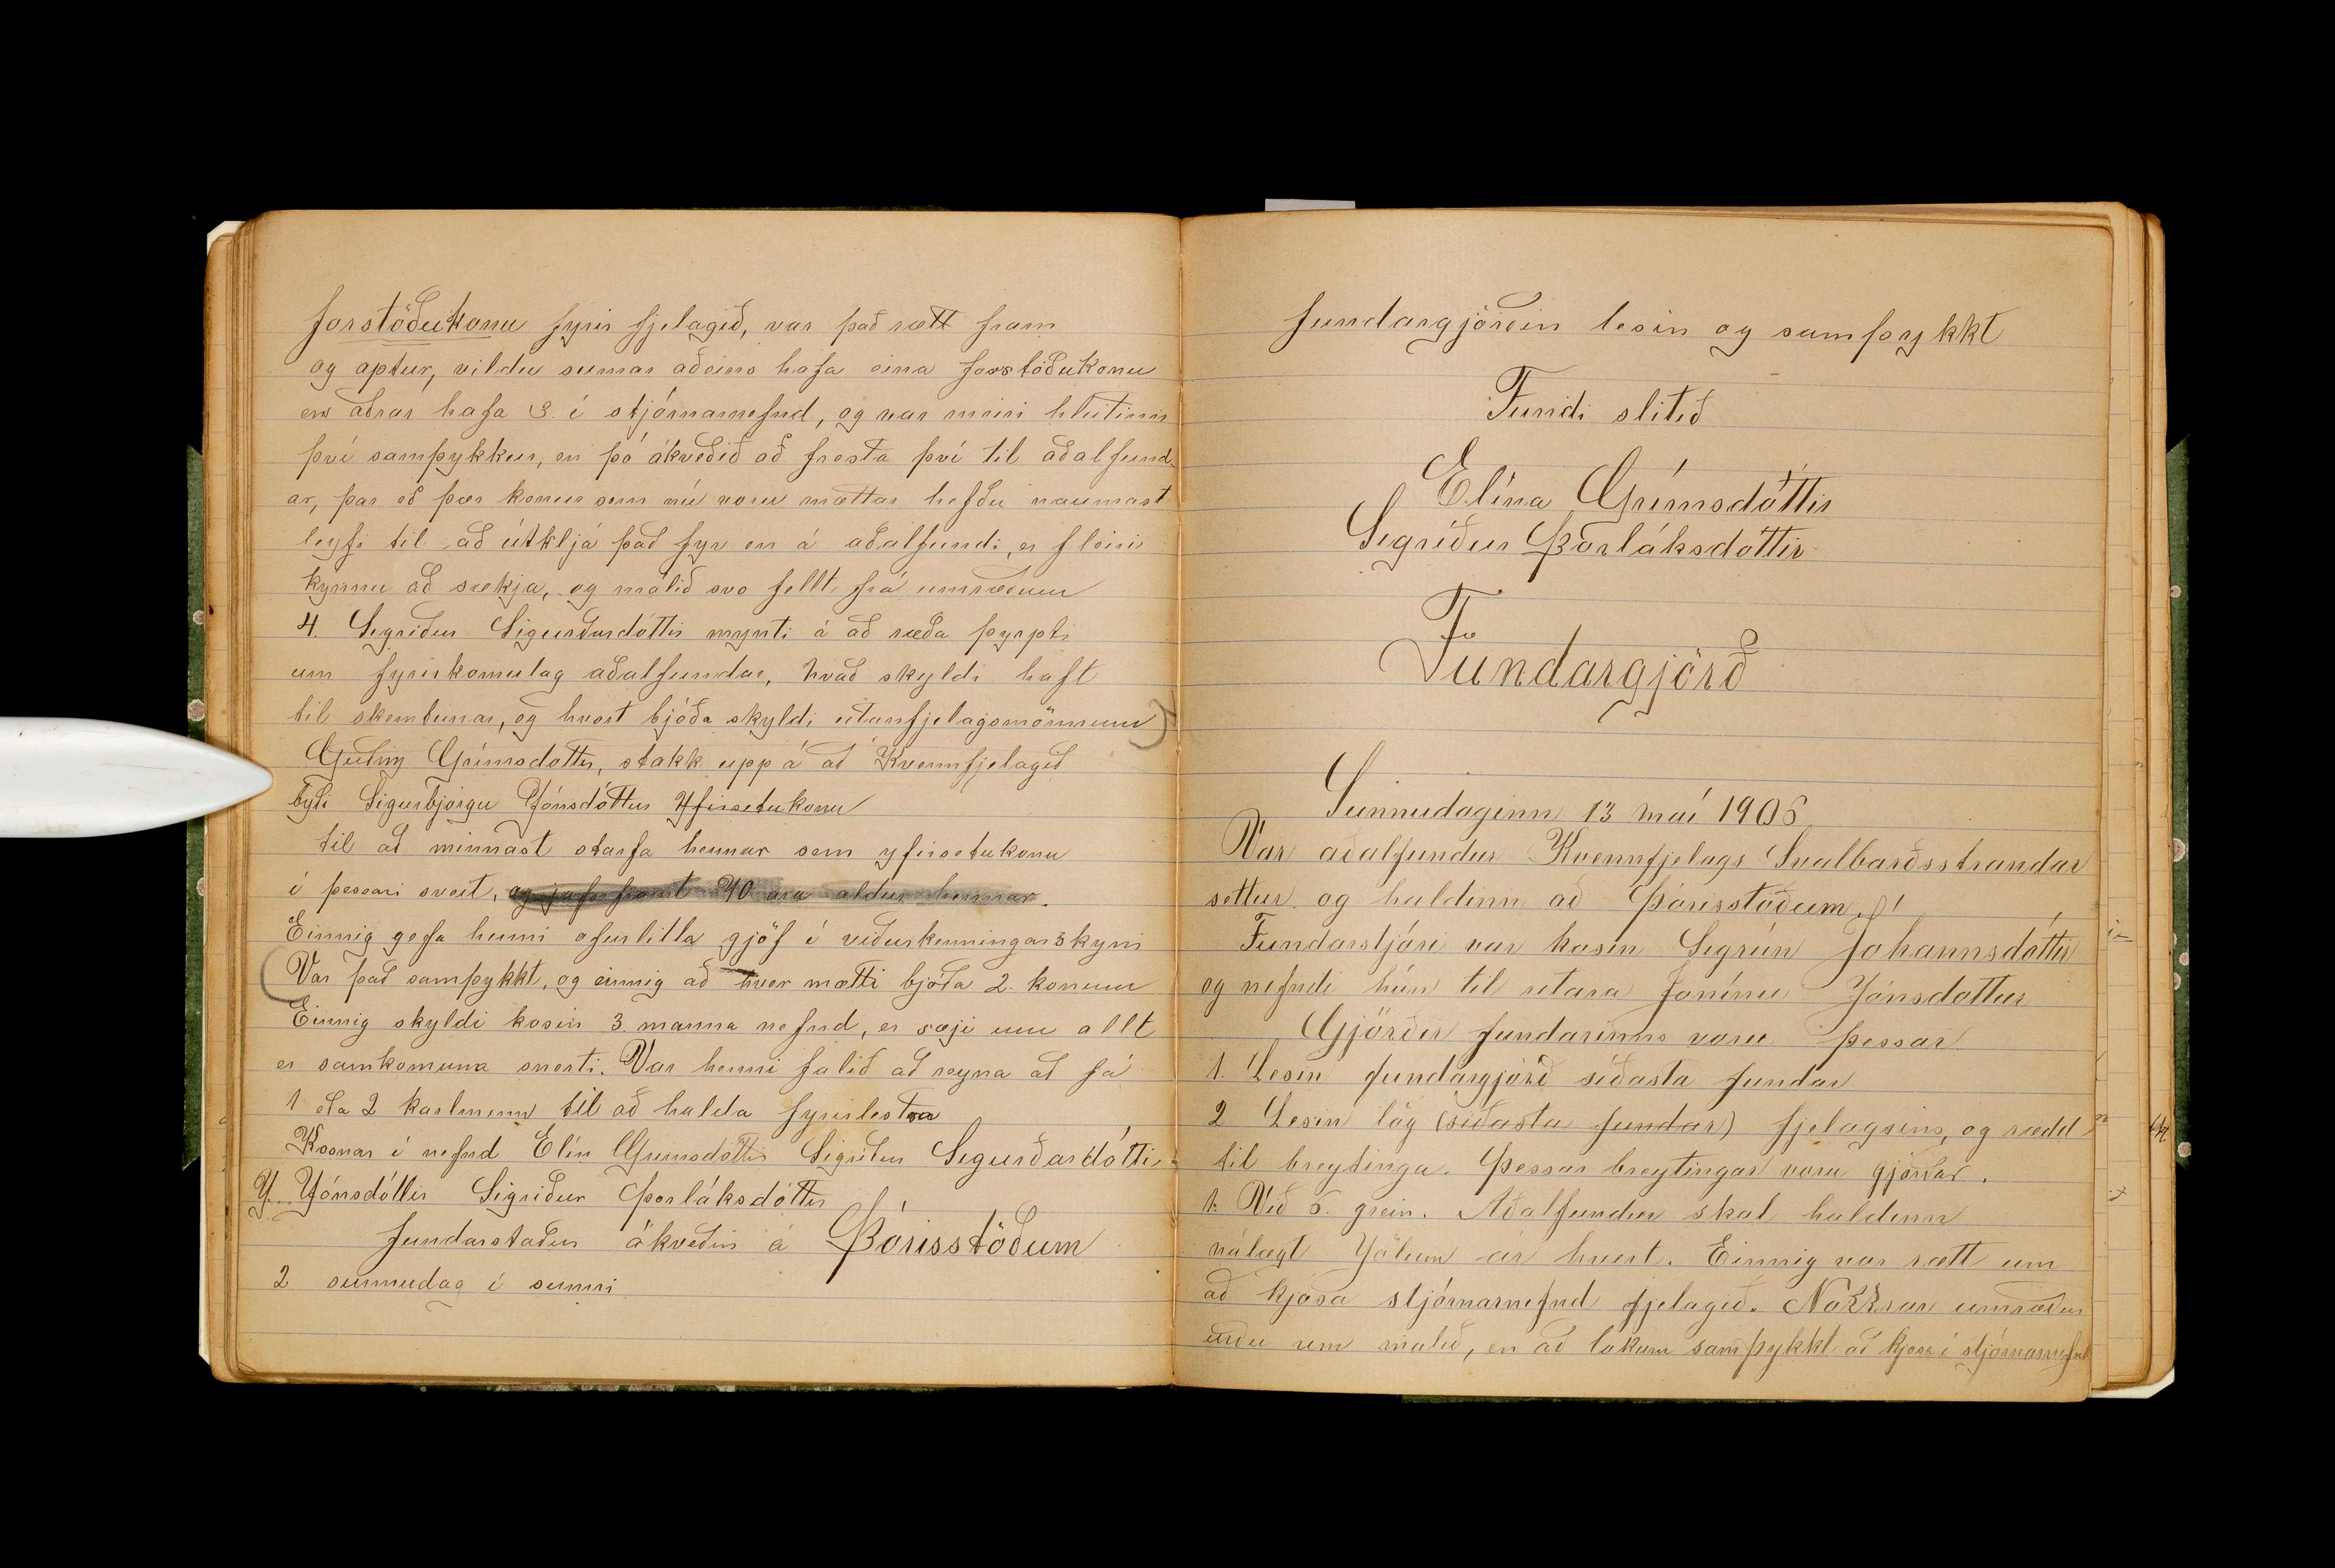 forstöðukonu fyrir fjelagið, var það rætt fram
og aptur, vildu sumar aðeins hafa eina forstöðukonu
en aðrar hafa 3. í stjórnarnefnd, og var meiri hlutinn
því samþykkur, en þó ákveðið að fresta því til aðalfund-
ar, þar eð þær konur sem nú voru mættar hefðu naumast
leyfi til að útkljá það fyr en á aðalfundi, er fleiri
kynnu að sækja, og málið svo fellt frá umræðum
4. Sigríður Sigurðardóttir mynti á að ræða þyrpti
um fyrirkomulag aðalfundar, hvað skyldi haft
til skemtunar, og hvort bjóða skyldi utanfjelagsmönnum
Guðný Grímsdóttir, stakk upp á að Kvennfjelagið
byði Sigurbjörgu Jónsdóttur Yfirsetukonu
til að minnast starfa hennar sem yfirsetukonu
í þessari sveit, og jafnframt 70 ára aldur hennar.
Einnig gefa henni ofurlitla gjöf í viðurkenningarskyni
Var það samþykkt, og einnig að hver mætti bjóða 2. konum
Einnig skyldi kosin 3 manna nefnd, er sæji um allt
er samkomuna snerti. Var henni falið að reyna að fá
1 eða 2 karlmenn til að halda fyrirlestra
Kosnar í nefnd Elín Grímsdóttir Sigríður Sigurðardóttir
J. Jónsdóttir Sigríður Þorláksdóttir
fundarstaður ákveðin á Þórisstöðum
2 sunnudag í sumri
fundargjörðin lesin og samþykkt
Fundi slitið
Elína Grímsdóttir
Sigríður Þorláksdóttir
Fundargjörð
Sunnudaginn 13 maí 1906
Var aðalfundur Kvennfjelags Svalbarðsstrandar
settur og haldinn að Þórisstöðum.
Fundarstjóri var kosin Sigrún Jóhannsdóttir
og nefndi hún til ritara Jonínu Jónsdóttur
Gjörðir fundarinns voru þessar
1. Lesin fundargjörð síðasta fundar
2 Lesin lög (síðasta fundar) fjelagsins, og rædd
til breytinga. Þessar breytingar voru gjörðar.
1. Við 5. grein. Aðalfundur skal haldinn
nálægt Jólum ár hvert. Einnig var rætt um
að kjósa stjórnarnefnd fjelagið. Nokkrar umræður
urðu um málið, en að lokum samþykkt að kjósa í stjórnarnefnd